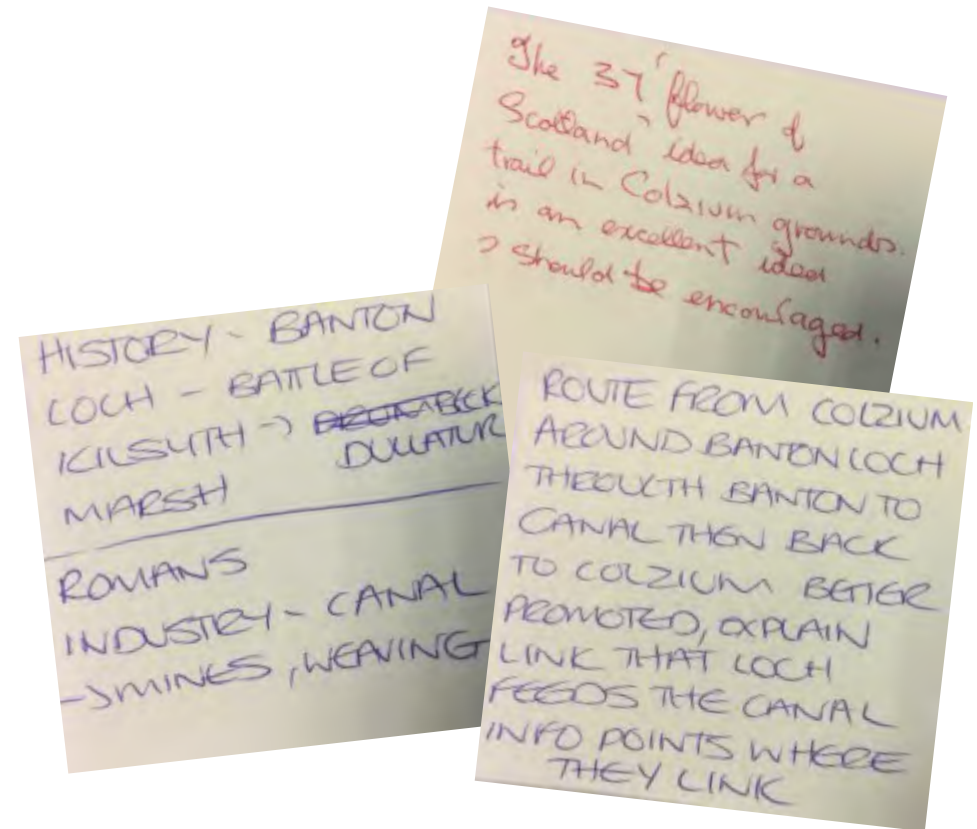 The 37 'flower of
Scotland' idea for a
trail in Colzium grounds.
is an excellent idea
should be encouraged.
HISTORY - BANTON
LOCH - BATTLE OF
KILSYTH ->
DULLATUR
MARSH
ROMANS
INDUSTRY - CANAL
-> MINES, WEAVING
ROUTE FROM COLZIUM
AROUND BANTON LOCH
THROUGTH BANTON TO
CANAL THEN BACK
TO COLZIUM BETTER
PROMOTED, EXPLAIN
LINK THAT LOCH
FEEDS THE CANAL
INFO POINTS WHERE
THEY LINK